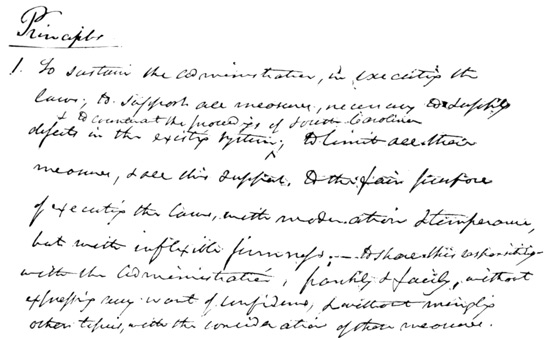 Principles
1. To sustain the administration, in executing the
laws; to support all measures, necessary to supply
& to counteract the proceedings of South Carolina
defects in the existing system; to limit all their
measures, & all this support, to the fair purpose
of executing the laws, with moderation & temperance,
but with inflexible firmness. — to share this responsibility
with the administration, frankly & fairly, without
expressing any want of confidence, & without mingling
other topics, with the consideration of these measures.